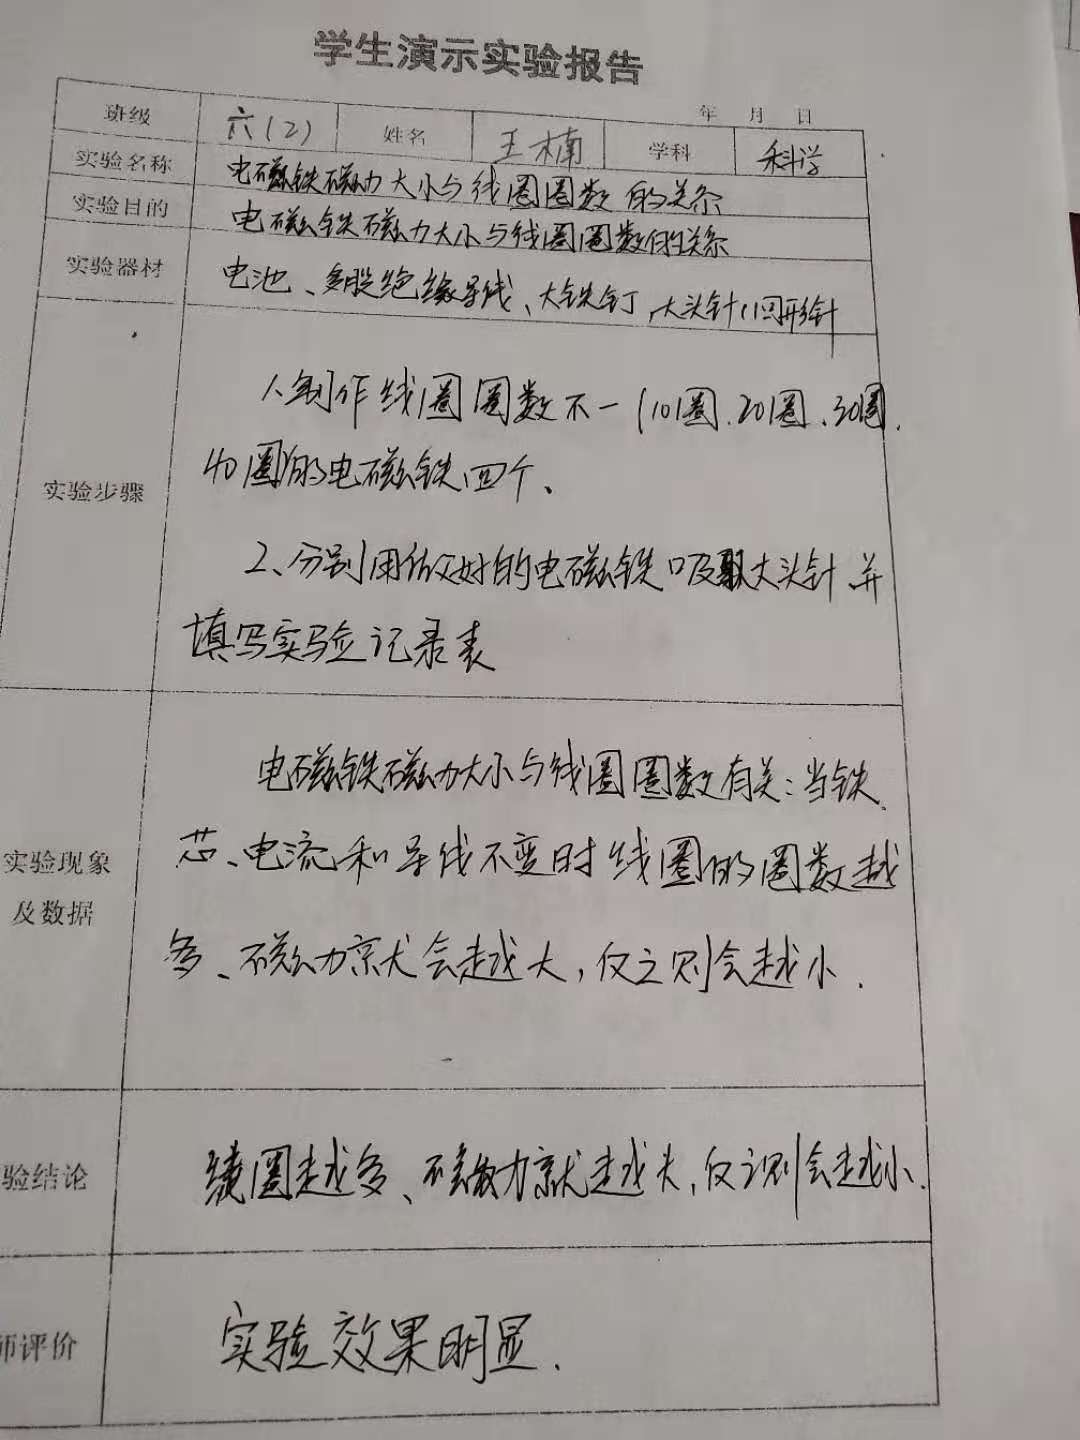 学生演示实验报告
年 月 日
班级 六(2) 姓名 王楠 学科 科学
实验名称 电磁铁磁力大小与线圈圈数的关系
实验目的 电磁铁磁力大小与线圈圈数的关系
实验器材 电池、多股绝缘导线、大铁钉,大头针(回形针
实验步骤
1、制作线圈圈数不一(10圈.20圈、30圈.
40圈)的电磁铁四个、
2、分别用做好的电磁铁吸取大头针并
填写实验记录表
实验现象
及数据
电磁铁磁力大小与线圈圈数有关:当铁
芯、电流和导线不变时线圈的圈数越
多、磁力就会越大,反之则会越小.
验结论
线圈越多、磁力就越大,反之则会越小.
师评价
实验效果明显.